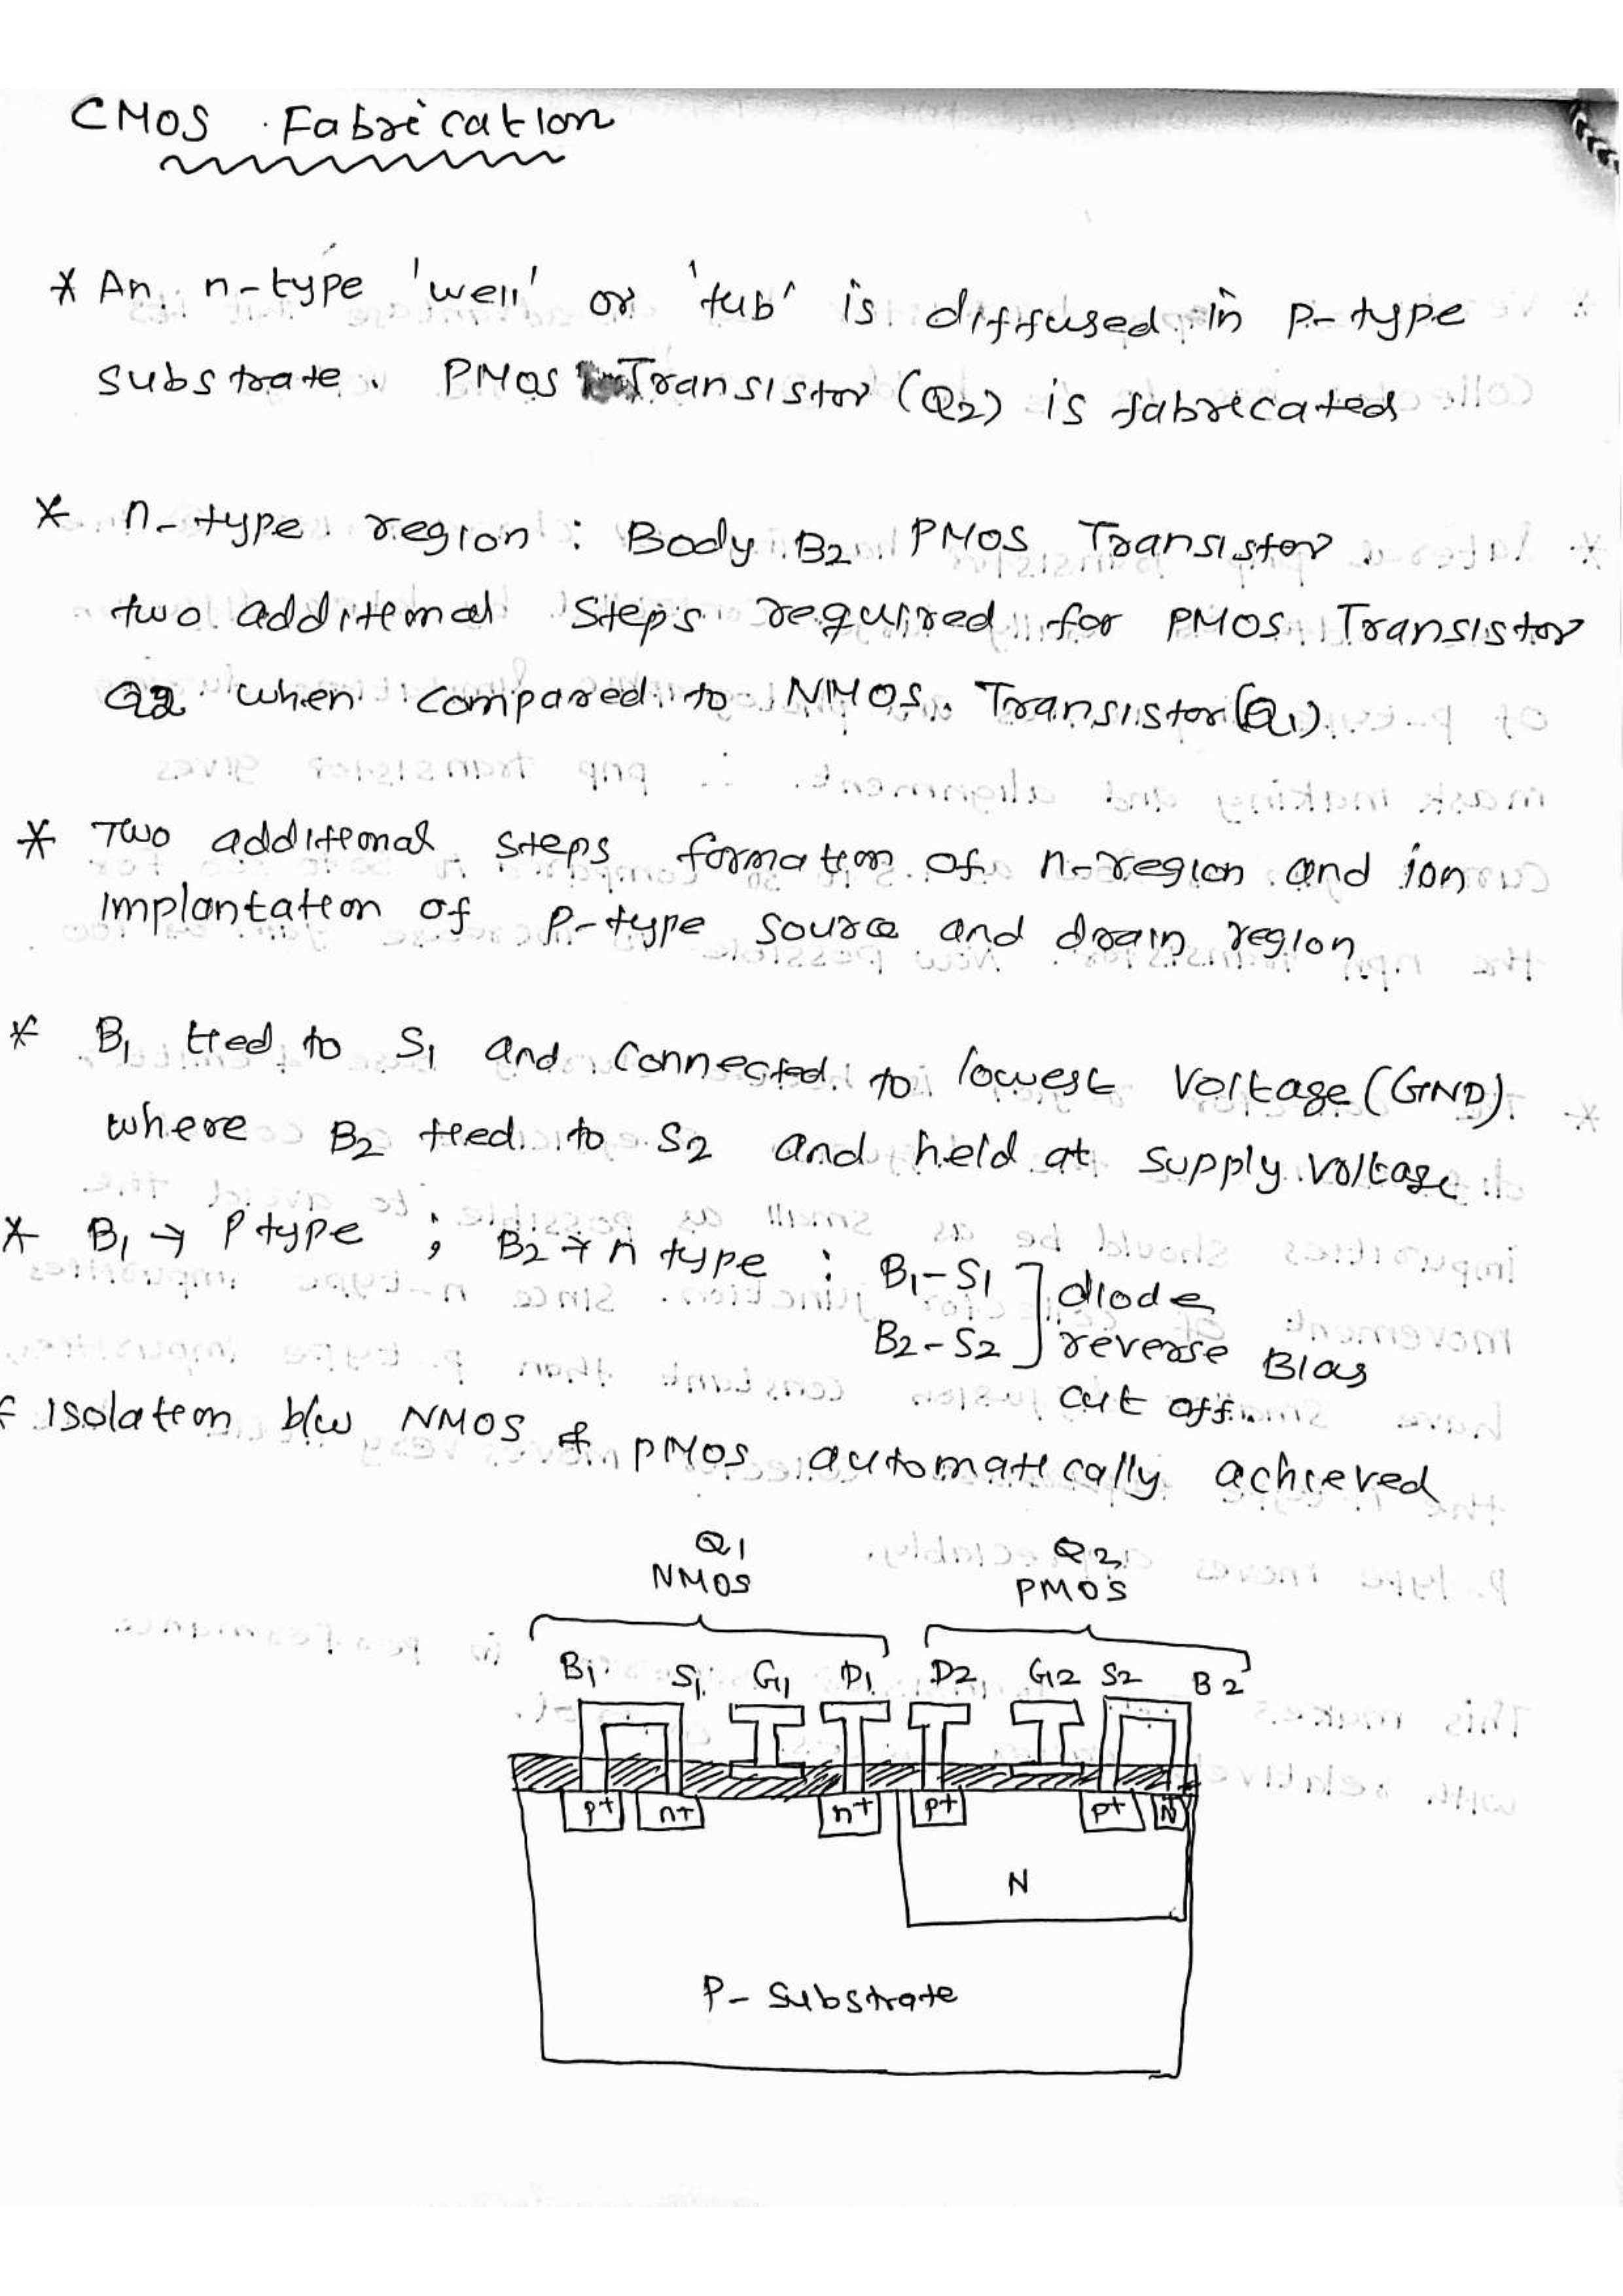 CMOS Fabrication
* An n-type 'well' or 'tub' is diffused in p-type
substrate. PMOS Transistor (Q2) is fabricated
* n-type region : Body B2 PMOS Transistor.
two additional steps required for PMOS Transistor
Q2 when compared to NMOS Transistor (Q1)
* Two additional steps formation of n-region and ion
implantation of p-type source and drain region
* B1 tied to S1 and connected to lowest voltage (GND)
where B2 tied to S2 and held at supply voltage
* B1 → P type ; B2 → n type : B1-S1 ] diode
B2-S2 ] reverse Bias
cut off.
* Isolation b/w NMOS & PMOS automatically achieved
Q1 Q2
NMOS PMOS
B1 S1 G1 D1 D2 G2 S2 B2
p+ n+ n+ p+ p+ N+
N
P- Substrate